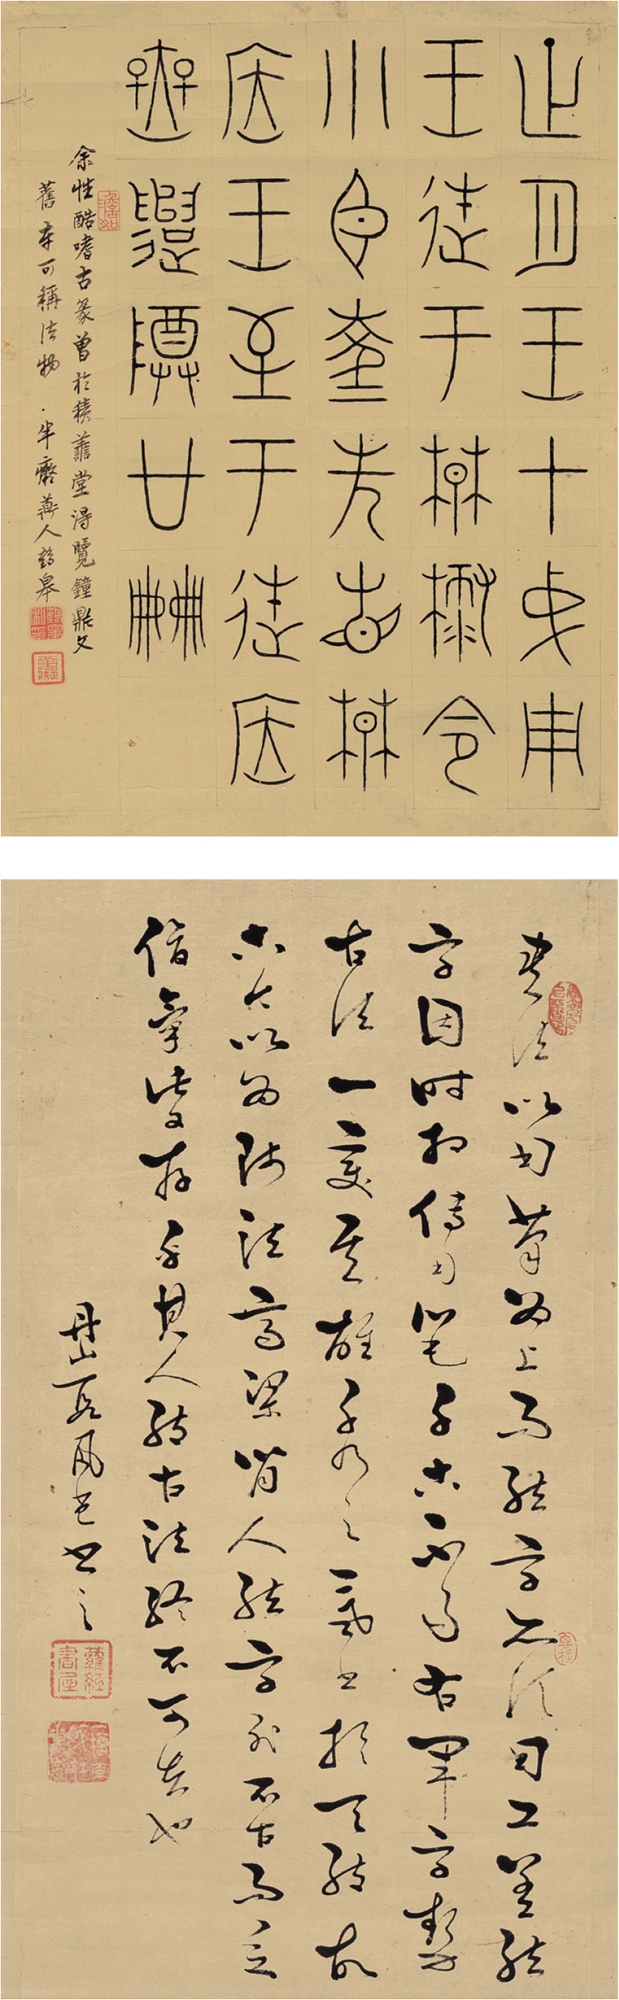 正月王才成周
王徙于楚麓令
小臣夌先省楚
居王至于徙居
無遣尊廿冊
余性酷嗜古篆曾於積蘊堂得覽鐘鼎文
舊本可稱法物
書法以用筆為上而結字亦須用工蓋結
字因時相傳用筆千古不易右軍字勢
古法一變其雄秀之氣出於天然故
古今以為師法齊梁間人結字非不古而乏
俊氣此又存乎其人然古法終不可失也
書之